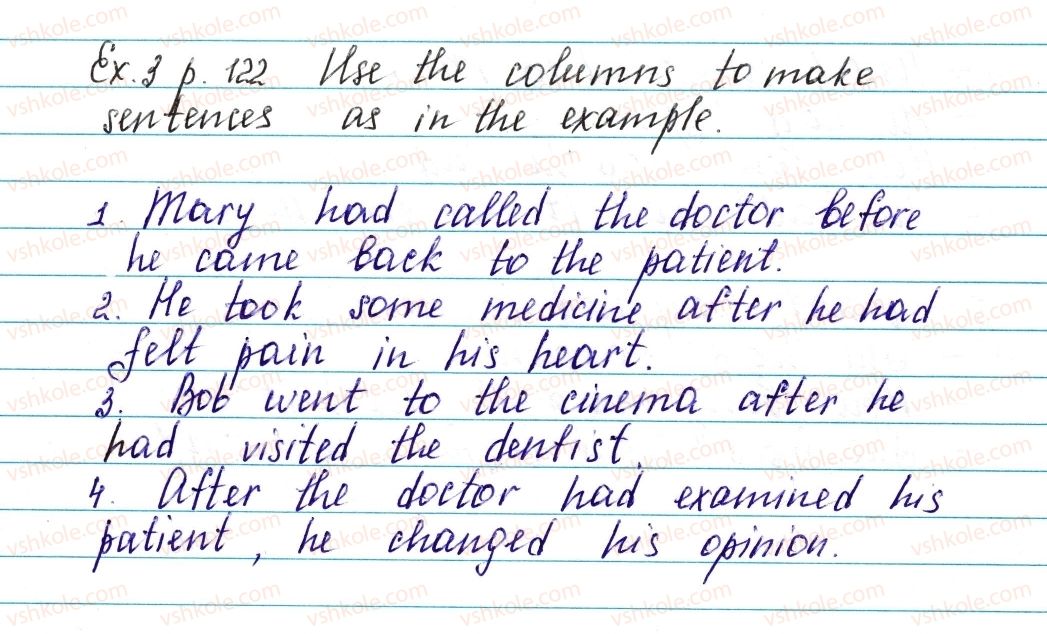 Ex. 3 p. 122 Use the columns to make
sentences as in the example.
1. Mary had called the doctor before
he came back to the patient.
2. He took some medicine after he had
felt pain in his heart.
3. Bob went to the cinema after he
had visited the dentist.
4. After the doctor had examined his
patient, he changed his opinion.